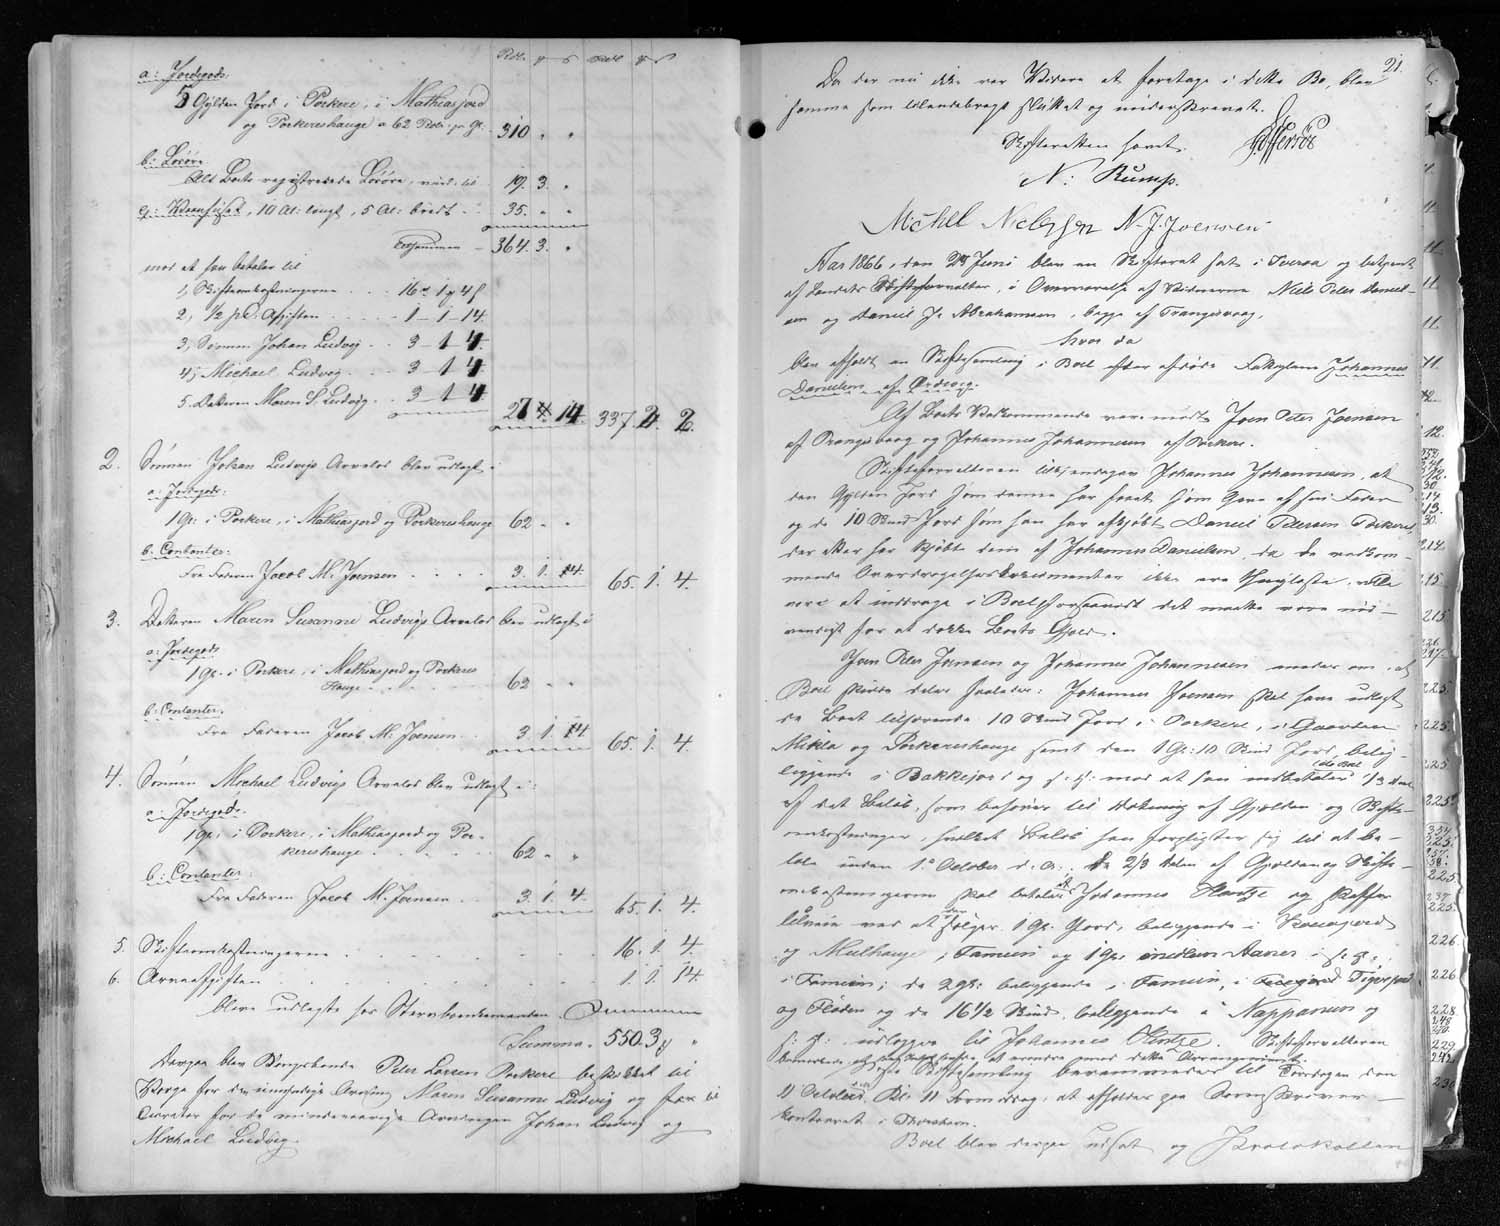 Rdl. ꝑ ß Rdl. ꝑ ß
a: Jordegods:
5 Gylden Jord i Porkere, i Mathiasjord
og Porkereshauge a 62 Rdl. pr. Gl. 310 " "
b: Løsøre
Alt Boets registrerede Løsøre, vurd. til 19. 3. "
c: Vaanhuset, 10 Al: langt, 5 Al: bredt 35. " "
tilsammen 364. 3. "
mod at han betaler til
1, Skifteomkostningerne 16 1 4
2, 1/2 pCt. Afgiften 1 - 1 - 14.
3, Sønnen Johan Ludvig 3 - 1 4.
4, Michael Ludvig 3 - 1 4.
5. Datteren Maren S. Ludvig 3 - 1 4
27 4 14. 337. 2. 2.
2. Sønnen Johan Ludvigs Arvelod blev udlagt i
a: Jordegods:
1 Gl: i Porkere, i Mathiasjord og Porkereshauge 62 " "
b. Contanter:
Fra Faderen Jacob M. Joensen 3. 1. 4 65. 1. 4.
3. Datteren Maren Susanne Ludvigs Arvelod blev udlagt i
a: Jordegods
1 Gl. i Porkere, i Mathiasjord og Porkeres
Hauge 62 " "
b. Contanter.
Fra Faderen Jacob M. Joensen 3. 1. 4. 65. 1. 4.
4. Sønnen Michael Ludvigs Arvelod blev udlagt i:
a: Jordegods.
1 Gl: i Porkere, i Mathiasjord og Por-
kereshauge 62 " "
b: Contanter:
Fra Faderen Jacob M. Joensen 3. 1. 4. 65. 1. 4.
5. Skifteomkostningerne 16. 1. 4.
6. Arveafgiften 1. 1. 14.
blev udlagte hos Stervboenkemanden
Summa. 550. 3 "
Derpaa blev Kongsbonde Peter Larsen Porkere beskikket til
Værge for den umyndige Arving Maren Susanne Ludvig og til
Curator for de mindreaarige Arvinger Johan Ludvig og
Michael Ludvig.
21.
Da der nu ikke var Videre at foretage i dette Bo, blev
samme som tilendebragt sluttet og underskrevet.
Skifteretten hævet.
N: Rump.
Michel Nielssen N. J. Joensen
Aar 1866, den Juni blev en Skifteret sat i Tveraa og betjent
af Landets Skifteforvalter, i Overværelse af Vidnerne Niels Peter Daniel-
sen og Daniel Jr. Abrahamsen, begge af Trangisvaag,
hvor da
blev afholdt en Skiftesamling i Boet efter afdøde Johannes
Danielsen af Ørdevig.
Af Boets Vedkommende vare mødt Joen Peter Joensen
af Trangisvaag og Johannes Johannesen af Porkere.
Skifteforvalteren tilkjendegav Johannes Johannesen, at
den Gylden Jord som denne har faaet som Gave af sin Fader
og de 10 Skind Jord som han har afkjøbt Daniel Petersen Porkere,
der atter har kjøbt dem af Johannes Danielsen, da de vedkom-
mende Overdragelsesdocumenter ikke ere thinglæste, ville
være at inddrage i Boet forsaavidt det maatte være nød-
vendigt for at dække Boets Gjæld.
Joen Peter Joensen og Johannes Johannesen enedes om, at
Boet skulde deles saaledes: Johannes Joensen skal have udlagt
de Boet tilhørende 10 Skind Jord i Porkere, i Gaarden
Mikla og Porkereshauge samt den 1 Gl: 10 Skind Jord, belig-
liggende i Bakkejord og f: H: mod at han indbetaler 1/3 Deel
af det Beløb, som behøves til Dækning af Gjælden og Skifte-
omkostninger, hvilket Beløb han forpligter sig til at be-
tale inden 1e October d. A.; de 2/3 Dele af Gjælden og Skifte-
omkostningerne skal betales af Johannes og skaffes
tilveie ved at sælger 1 Gl. Jord, beliggende i
og Mulhauge, i Famien og 1 Gl. imellem Aarne i f: H:
i Famien; de 2 Gl: beliggende i Famien, i
og Fløden og de 16 1/2 Skind, beliggende i Nappanum og
f: H: udlægges til Johannes. Skifteforvalteren
bemærkede at erindre mod dette Arrangement.
Næste Skiftesamling berammedes til Torsdagen den
11 October, Kl. 11 Formiddag, at afholdes paa Sorenskriver-
kontoiret i Thorshavn.
Boet blev derpaa udsat og Protokollen